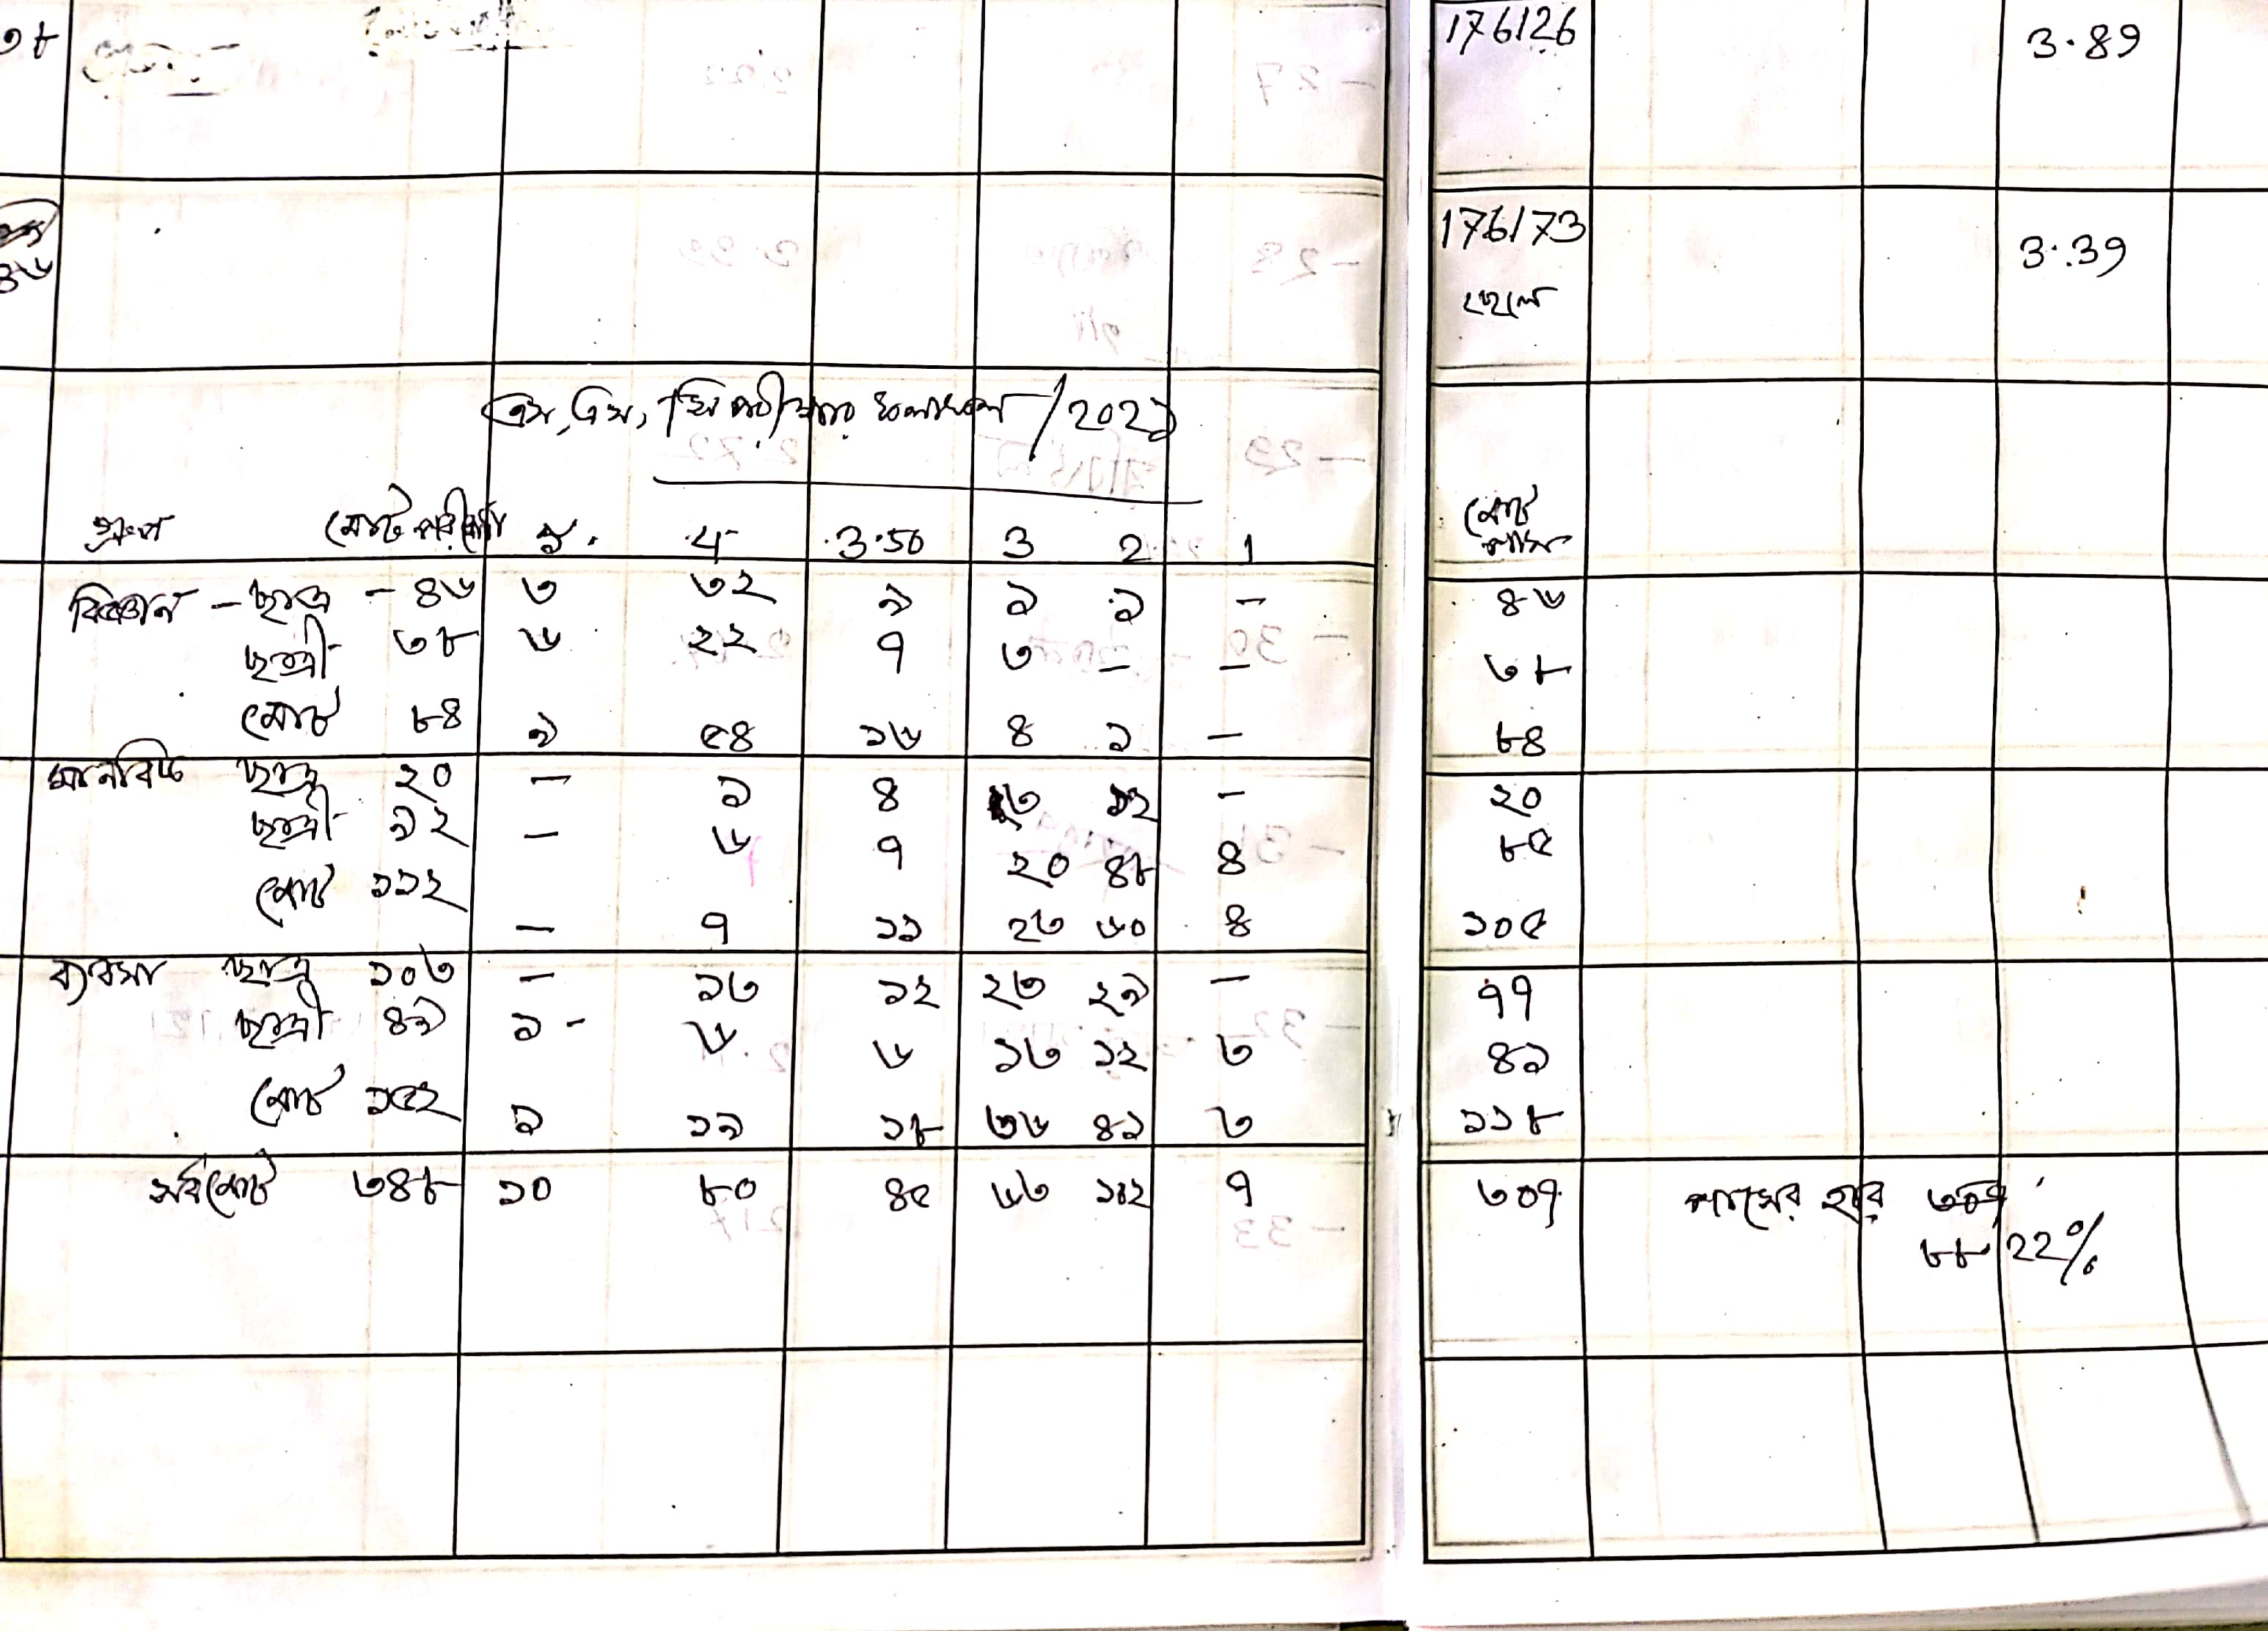 ৩৮ 176126 3.89
176173 3.39
৪৬ ছেলে
এস, এস, সি পরীক্ষার ফলাফল / 2021
গ্রুপ মোট পরীক্ষার্থী ৫. 4 3.50 3 2 1 মোট পাস
বিজ্ঞান - ছাত্র - ৪৬ ৩ ৩২ ৯ ১ ১ - ৪৬
ছাত্রী ৩৮ ৬ ২২ ৭ ৩ - - ৩৮
মোট ৮৪ ৯ ৫৪ ১৬ ৪ ১ - ৮৪
মানবিক ছাত্র ২০ - ১ ৪ ৩ ১২ - ২০
ছাত্রী ৯২ - ৬ ৭ ২০ ৪৮ ৪ ৮৫
মোট ১১২ - ৭ ১১ ২৩ ৬০ ৪ ১০৫
ব্যবসা ছাত্র ১০৩ - ১৩ ১২ ২৩ ২৯ - ৭৭
ছাত্রী ৪৯ ১ - ৬ ৬ ১৩ ১২ ৩ ৪১
মোট ১৫২ ১ ১৯ ১৮ ৩৬ ৪১ ৩ ১১৮
সর্বমোট ৩৪৮ ১০ ৮০ ৪৫ ৬৩ ১০২ ৭ ৩০৭ পাসের হার
৮৮ 22%